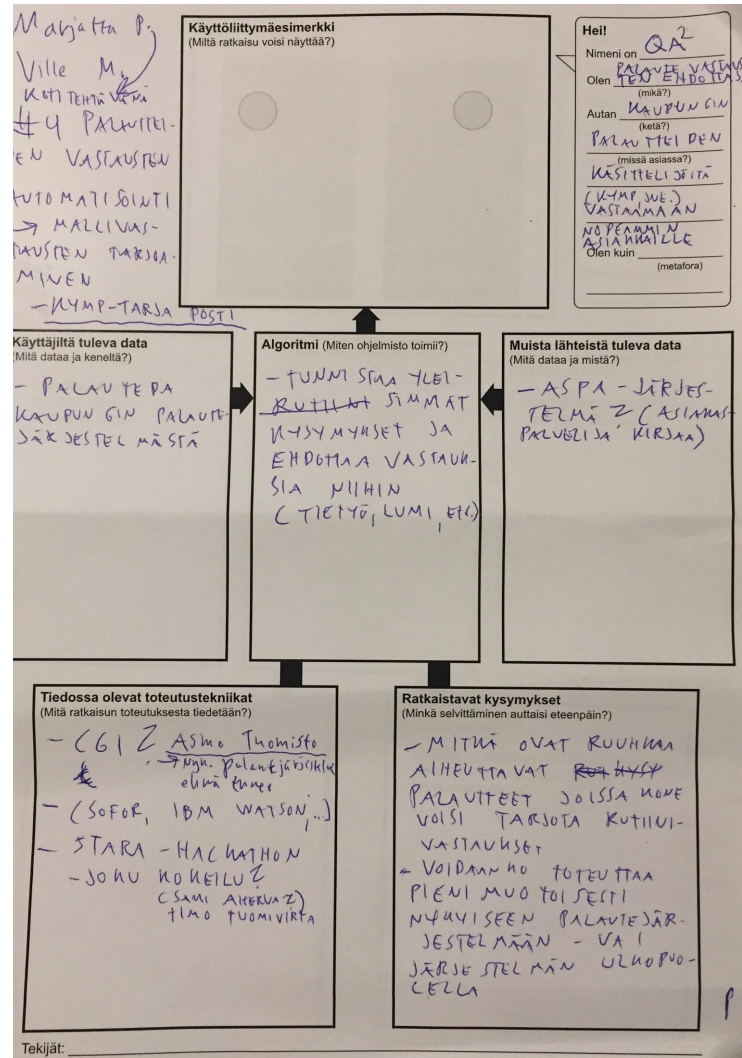 Marjatta P.
Ville M.
KOTITEHTÄVÄNÄ
#4 PALAUTTEI-
EN VASTAUSTEN
AUTOMATISOINTI
→ MALLIVAS-
TAUSTEN TARJOA-
MINEN
- KYMP-TARJA POSTI
Käyttöliittymäesimerkki
(Miltä ratkaisu voisi näyttää?)
Hei!
Nimeni on QA²
Olen PALAUTE VASTAUS
TEN EHDOTTAJA
(mikä?)
Autan KAUPUNGIN
(ketä?)
PALAUTTEIDEN
(missä asiassa?)
KÄSITTELIJÖITÄ
(KYMP, SVE.)
VASTAAMAAN
NOPEAMMIN
ASIAKKAILLE
Olen kuin
(metafora)
Käyttäjiltä tuleva data
(Mitä dataa ja keneltä?)
- PALAUTEDA
KAUPUNGIN PALAUTE-
JÄRJESTELMÄSTÄ
Algoritmi (Miten ohjelmisto toimii?)
- TUNNISTAA YLEI-
SIMMÄT
KYSYMYKSET JA
EHDOTTAA VASTAUK-
SIA NIIHIN
(TIETYÖ, LUMI, ETC.)
Muista lähteistä tuleva data
(Mitä dataa ja mistä?)
- ASPA-JÄRJES-
TELMÄ? (ASIAKAS-
PALVELIJA KIRJAA)
Tiedossa olevat toteutustekniikat
(Mitä ratkaisun toteutuksesta tiedetään?)
- CGI? Asmo Tuomisto
→ Nyk. palautejärjestelmä
- (SOFOR, IBM WATSON,..)
- STARA-HACKATHON
- JOKU KOKEILU?
(SAMI AHERVA?)
TIMO TUOMIVIRTA
Ratkaistavat kysymykset
(Minkä selvittäminen auttaisi eteenpäin?)
- MITKÄ OVAT RUUHKAA
AIHEUTTAVAT
PALAUTTEET JOISSA KONE
VOISI TARJOTA RUTIINI-
VASTAUKSET
- VOIDAANKO TOTEUTTAA
PIENI MUOTOISESTI
NYKYISEEN PALAUTEJÄR-
JESTELMÄÄN - VAI
JÄRJESTELMÄN ULKOPUO-
LELLA
Tekijät: